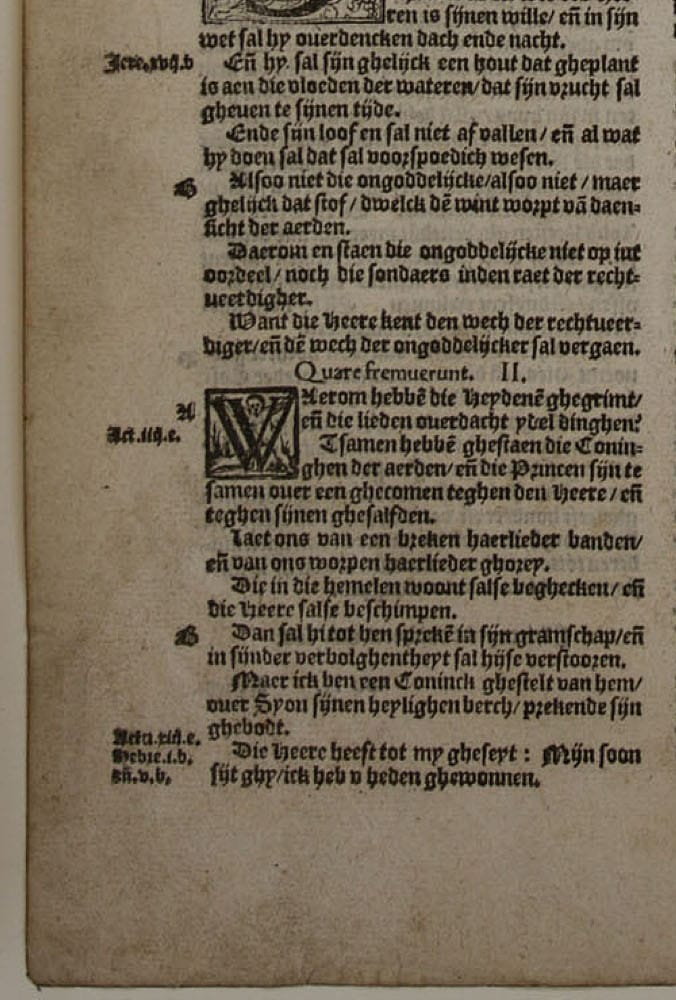 ren is sijnen wille/ eñ in sijn
wet sal hy ouerdencken dach ende nacht.
Jere.xvij.b
Eñ hy sal sijn ghelijck een hout dat gheplant
is aen die vloeden der wateren/dat sijn vrucht sal
gheuen te sijnen tijde.
Ende sijn loof en sal niet af vallen/ eñ al wat
hy doen sal dat sal voorspoedich wesen.
B
Alsoo niet die ongoddelijcke/alsoo niet/ maer
ghelijck dat stof/ dwelck dē wint worpt vā daen-
sicht der aerden.
Daerom en staen die ongoddelijcke niet op int
oordeel/ noch die sondaers inden raet der recht-
ueerdigher.
Want die Heere kent den wech der rechtueer-
diger/eñ dē wech der ongoddelijcker sal vergaen.
Quare fremuerunt. II.
A
WAerom hebbē die Heydenē ghegrimt/
Act.iiij.e.
eñ die lieden ouerdacht ydel dinghen?
Tsamen hebbē ghestaen die Conin-
ghen der aerden/ eñ die Princen sijn te
samen ouer een ghecomen teghen den Heere/ eñ
teghen sijnen ghesalfden.
Laet ons van een breken haerlieder banden/
eñ van ons worpen haerlieder ghorey.
Die in die hemelen woont salse beghecken/ eñ
die Heere salse beschimpen.
B
Dan sal hi tot hen sprekē in sijn gramschap/eñ
in sijnder verbolghentheyt sal hijse verstooren.
Maer ick ben een Coninck ghestelt van hem/
ouer Syon sijnen heylighen berch/ prekende sijn
ghebodt.
Actu.xiij.e.
Hebre.i.b.
eñ.v.b.
Die Heere heeft tot my gheseyt: Mijn soon
sijt ghy/ick heb v heden ghewonnen.